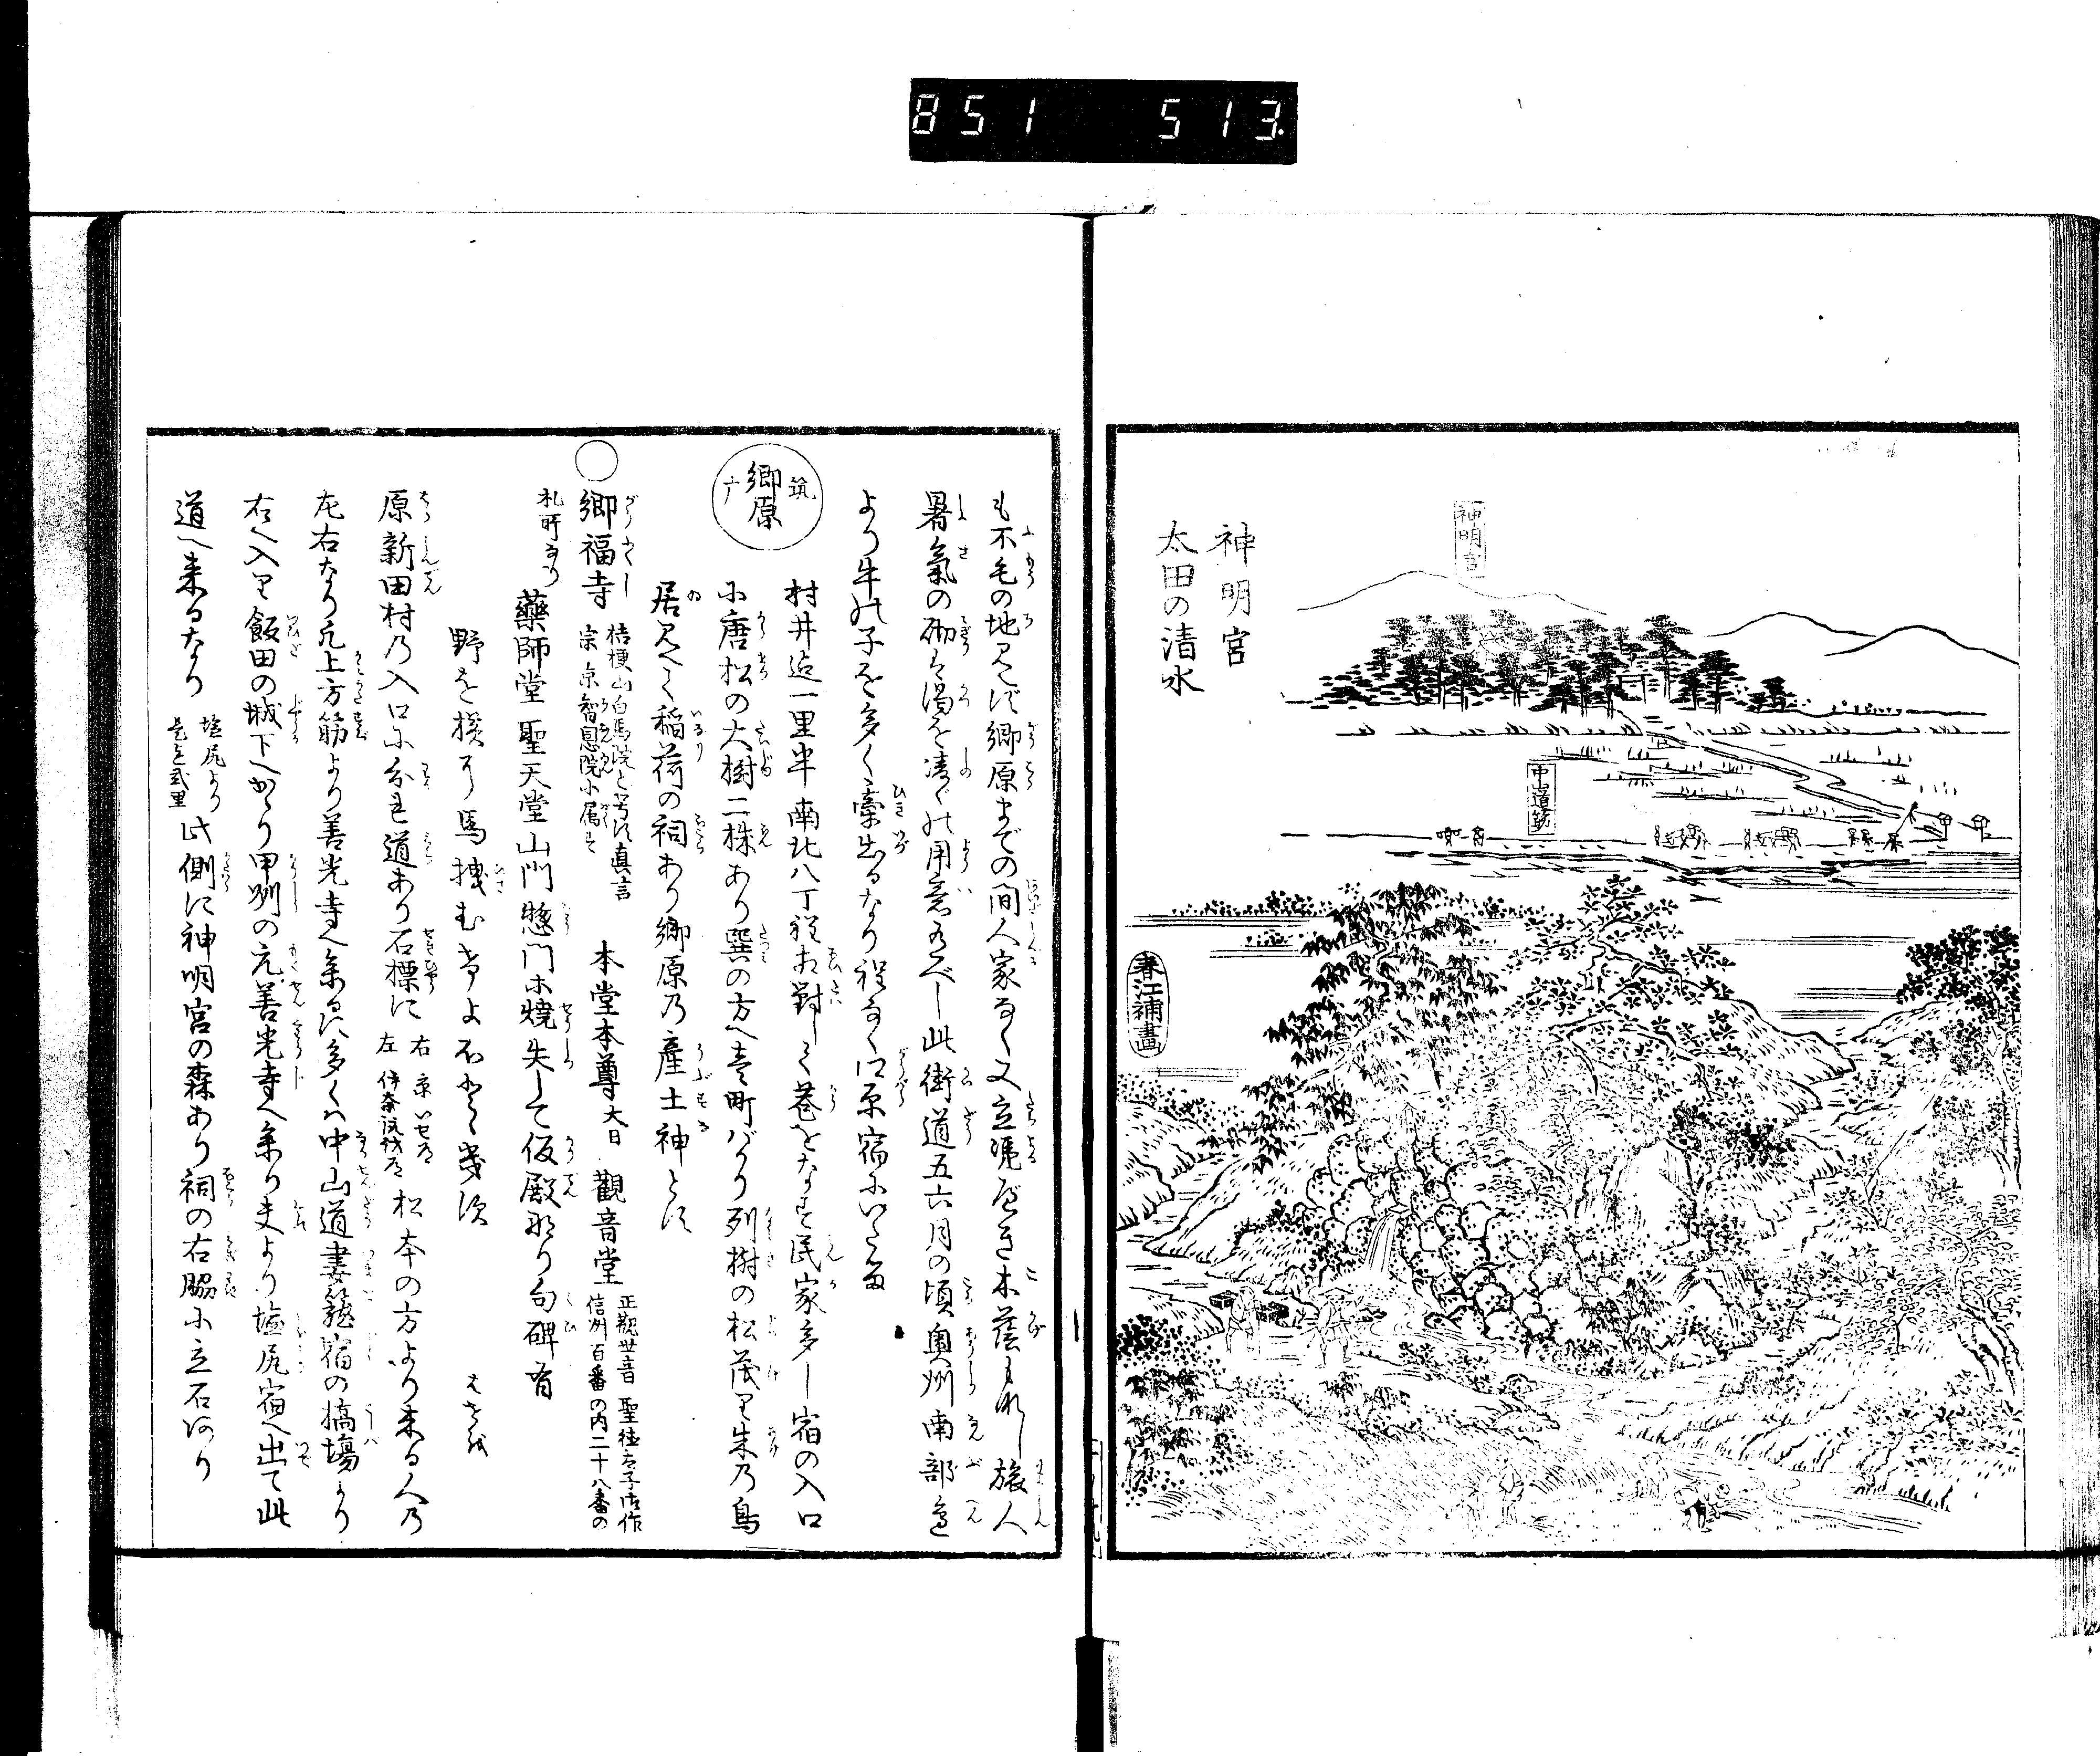 851 513
神明宮
太田の清水
神明宮
中山道筋
春江補畫
も不毛の地にして郷原までの間人家なく又立慿べき木蔭もなし旅人
暑氣の砌は渇を凌ぐの用意有べし此街道五六月の頃奥州南部邉
より牛の子を多く牽出るなり程なく口原宿にいたる
筑广
郷原
村井迄一里半南北八丁程相對して巷をなす民家多し宿の入口
に唐松の大樹二株あり巽の方へ壱町ばかり列樹の松茂り朱の鳥
居見へて稲荷の祠あり郷原の産土神とす
○郷福寺
桔梗山白馬院と号す真言
宗京智恩院に属す
本堂本尊大日
觀音堂
正觀世音聖徳太子御作
信州百番の内二十八番の
札所なり
藥師堂聖天堂山門惣門等焼失して仮殿なり句碑有
野を横に馬挽むけよ不如帰
はせを
原新田村の入口に分れ道あり石標に
右京いせ道
左伊奈
松本の方より来る人の
左右なり凡上方筋より善光寺へ参るには多くは中山道妻籠宿の橋場より
右へ入り飯田の城下へかゝり甲州の元善光寺へ参り夫より塩尻宿へ出て此
道へ来るなり
塩尻より
是迄弐里
此側に神明宮の森あり祠の右脇に立石あり